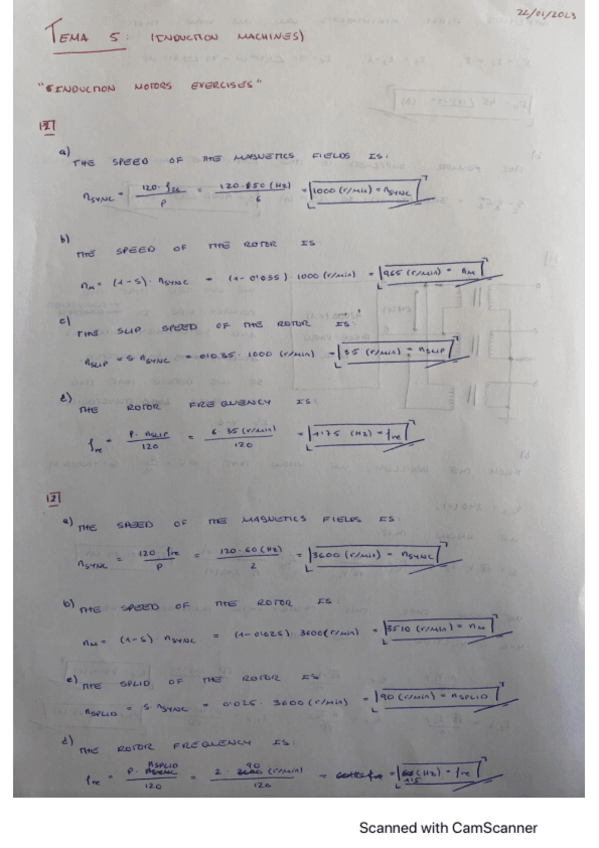 22/01/2023
TEMA 5: (INDUCTION MACHINES)
"INDUCTION MOTORS EXERCISES"
1
a) THE SPEED OF THE MAGNETICS FIELDS IS:
nSYNC = 120·fse / P = 120·50 (Hz) / 6 = 1000 (r/min) = nSYNC
b) THE SPEED OF THE ROTOR IS:
nM = (1-S)·nSYNC = (1-0'035) 1000 (r/min) = 965 (r/min) = nM
c) THE SLIP SPEED OF THE ROTOR IS:
nSLIP = S·nSYNC = 0'035·1000 (r/min) = 35 (r/min) = nSLIP
d) THE ROTOR FREQUENCY IS:
fre = P·nSLIP / 120 = 6·35 (r/min) / 120 = 1'75 (Hz) = fre
2
a) THE SPEED OF THE MAGNETICS FIELDS IS:
nSYNC = 120 fre / P = 120·60 (Hz) / 2 = 3600 (r/min) = nSYNC
b) THE SPEED OF THE ROTOR IS:
nM = (1-S) nSYNC = (1-0'025) 3600 (r/min) = 3510 (r/min) = nM
c) THE SPLID OF THE ROTOR IS:
nSPLID = S·nSYNC = 0'025·3600 (r/min) = 90 (r/min) = nSPLID
d) THE ROTOR FREQUENCY IS:
fre = P·nSPLID / 120 = 2·90 (r/min) / 120 = 1'5 (Hz) = fre
Scanned with CamScanner